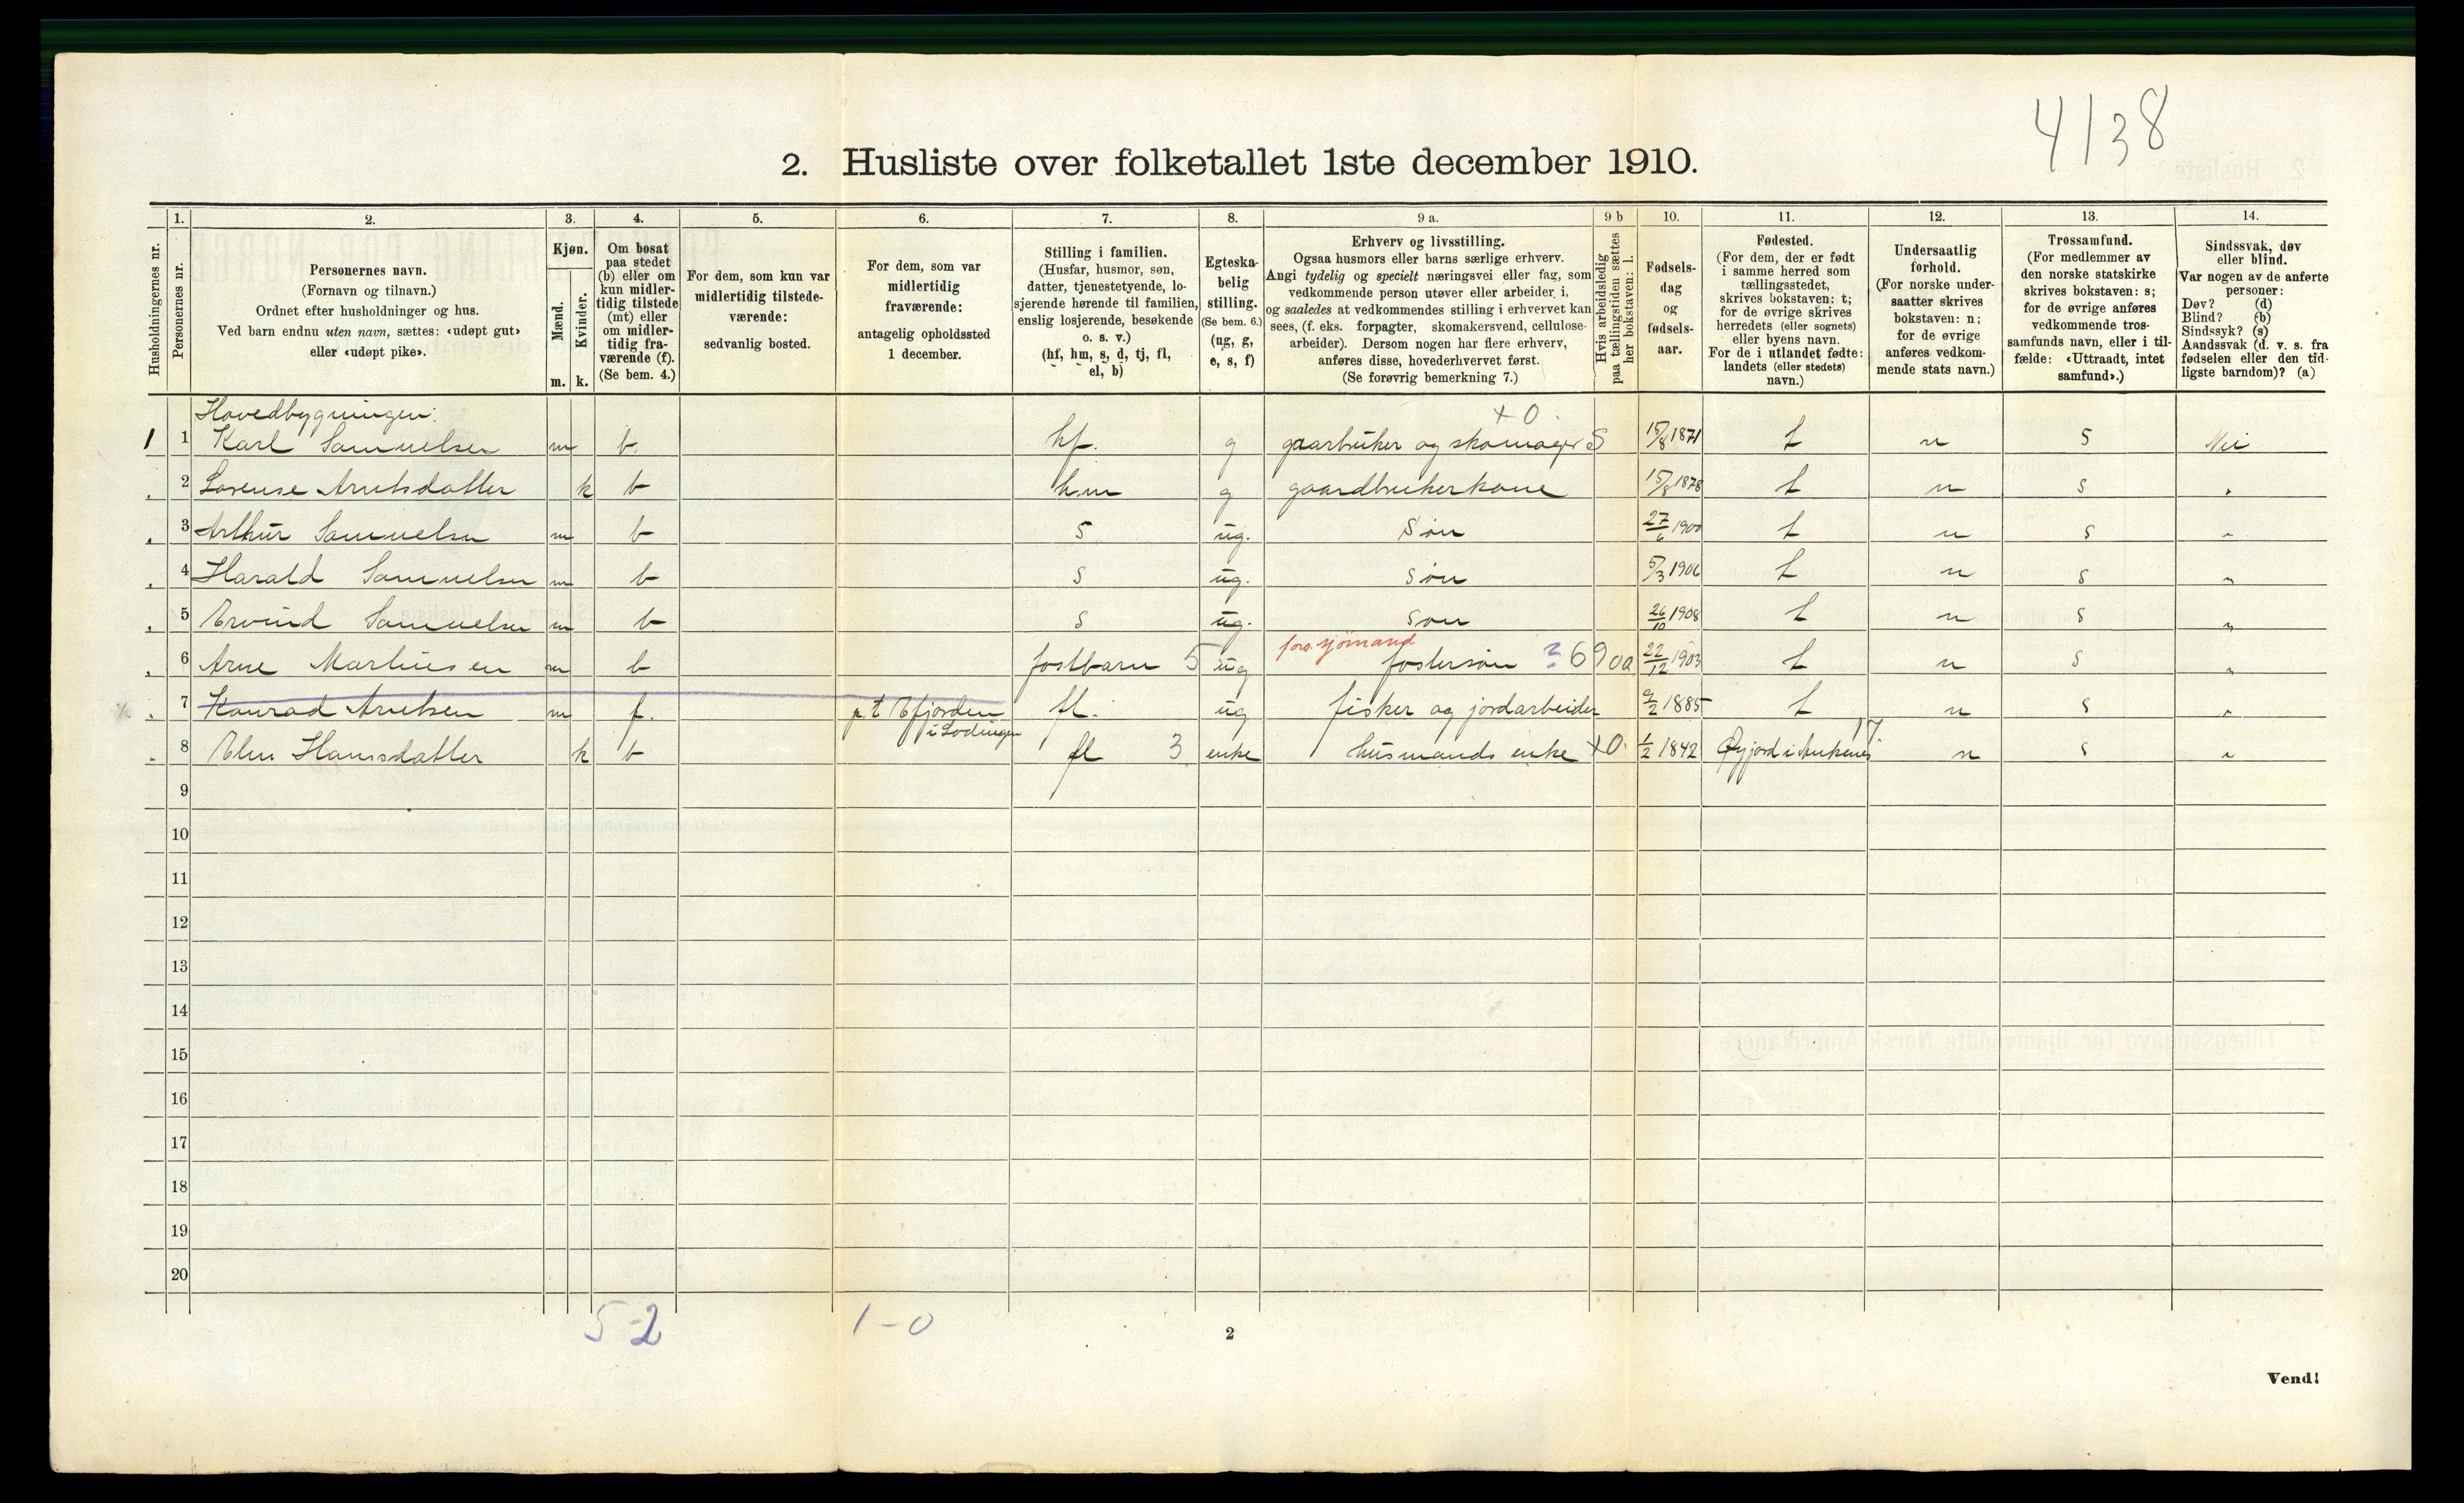 4138
2. Husliste over folketallet 1ste december 1910.
Husholdningernes nr.
1.
Personernes nr.
2.
Personernes navn.
(Fornavn og tilnavn.)
Ordnet efter husholdninger og hus.
Ved barn endnu uten navn, sættes: «udøpt gut»
eller «udøpt pike».
3.
Kjøn.
Mænd.
Kvinder.
m. k.
4.
Om bosat
paa stedet
(b) eller om
kun midler-
tidig tilstede
(mt) eller
om midler-
tidig fra-
værende (f).
(Se bem. 4.)
5.
For dem, som kun var
midlertidig tilstede-
værende:
sedvanlig bosted.
6.
For dem, som var
midlertidig
fraværende:
antagelig opholdssted
1 december.
7.
Stilling i familien.
(Husfar, husmor, søn,
datter, tjenestetyende, lo-
sjerende hørende til familien,
enslig losjerende, besøkende
o. s. v.)
(hf, hm, s, d, tj, fl,
el, b)
8.
Egteska-
belig
stilling.
(Se bem. 6.)
(ug, g,
e, s, f)
9 a.
Erhverv og livsstilling.
Ogsaa husmors eller barns særlige erhverv.
Angi tydelig og specielt næringsvei eller fag, som
vedkommende person utøver eller arbeider i,
og saaledes at vedkommendes stilling i erhvervet kan
sees, (f. eks. forpagter, skomakersvend, cellulose-
arbeider). Dersom nogen har flere erhverv,
anføres disse, hovederhvervet først.
(Se forøvrig bemerkning 7.)
9 b
Hvis arbeidsledig
paa tællingstiden sættes
her bokstaven: l.
10.
Fødsels-
dag
og
fødsels-
aar.
11.
Fødested.
(For dem, der er født
i samme herred som
tællingsstedet,
skrives bokstaven: t;
for de øvrige skrives
herredets (eller sognets)
eller byens navn.
For de i utlandet fødte:
landets (eller stedets)
navn.)
12.
Undersaatlig
forhold.
(For norske under-
saatter skrives
bokstaven: n;
for de øvrige
anføres vedkom-
mende stats navn.)
13.
Trossamfund.
(For medlemmer av
den norske statskirke
skrives bokstaven: s;
for de øvrige anføres
vedkommende tros-
samfunds navn, eller i til-
fælde: «Uttraadt, intet
samfund».)
14.
Sindssvak, døv
eller blind.
Var nogen av de anførte
personer:
Døv? (d)
Blind? (b)
Sindssyk? (s)
Aandssvak (d. v. s. fra
fødselen eller den tid-
ligste barndom)? (a)
Hovedbygningen: +0.
1 1 Karl Samuelsen m b. hf. g gaarbruker og skomager S 15/8 1871 t n s Nei
" 2 Lovense Arntsdatter k b hm g gaardbrukerkone 15/8 1878 t n s "
" 3 Arthur Samuelsen m b s ug. Søn 27/6 1900 t n s "
" 4 Harald Samuelsen m b s ug. søn 5/3 1906 t n s "
" 5 Ervind Samuelsen m b s ug. søn 26/10 1908 t n s "
fors. sjömand
" 6 Arne Martinsen m b fostbarn 5 ug fostersøn ? 6900 22/12 1903 t n s "
" 7 Konrad Arntsen m f. p. t Efjorden i Lødingen fl. ug fisker og jordarbeider 9/2 1885 t n s "
" 8 Elen Hansdatter k b fl 3 enke husmands enke +0. 1/2 1842 Øyjord i Ankenes 17 n s "
9
10
11
12
13
14
15
16
17
18
19
20
5-2 1-0
2
Vend!